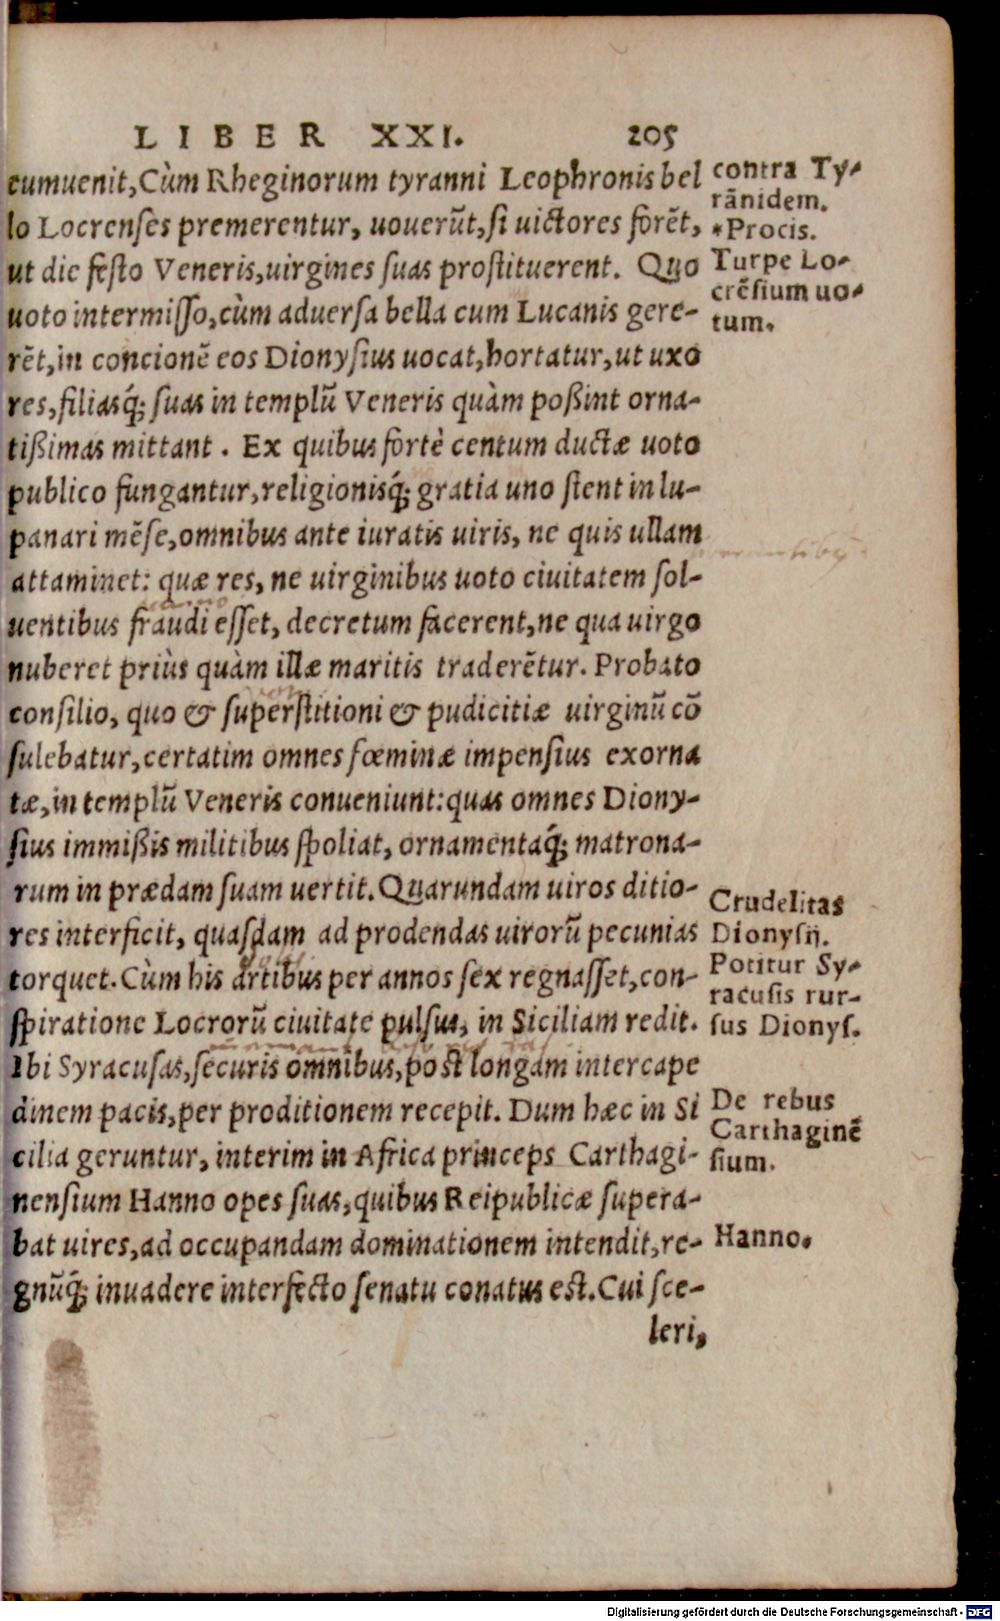 LIBER XXI. 205
cumuenit, Cùm Rheginorum tyranni Leophronis bel
lo Locrenses premerentur, uouerũt, si uictores forẽt,
ut die festo Veneris, uirgines suas prostituerent. Quo
uoto intermisso, cùm aduersa bella cum Lucanis gere-
rẽt, in concionẽ eos Dionysius uocat, hortatur, ut uxo
res, filiasq́; suas in templũ Veneris quàm poßint orna-
tißimas mittant. Ex quibus fortè centum ductæ uoto
publico fungantur, religionisq́; gratia uno stent in lu-
panari mẽse, omnibus ante iuratis uiris, ne quis ullam
attaminet: quæ res, ne uirginibus uoto ciuitatem sol-
uentibus fraudi esset, decretum facerent, ne qua uirgo
nuberet priùs quàm illæ maritis traderẽtur. Probato
consilio, quo & superstitioni & pudicitiæ uirginũ cõ
sulebatur, certatim omnes fœminæ impensius exorna
tæ, in templũ Veneris conueniunt: quas omnes Diony-
sius immißis militibus spoliat, ornamentaq́; matrona-
rum in prædam suam uertit. Quarundam uiros ditio-
res interficit, quasdam ad prodendas uirorũ pecunias
torquet. Cùm his artibus per annos sex regnasset, con-
spiratione Locrorũ ciuitate pulsus, in Siciliam redit.
Ibi Syracusas, securis omnibus, post longam intercape
dinem pacis, per proditionem recepit. Dum hæc in Si
cilia geruntur, interim in Africa princeps Carthagi-
nensium Hanno opes suas, quibus Reipublicæ supera-
bat uires, ad occupandam dominationem intendit, re-
gnũq́; inuadere interfecto senatu conatus est. Cui sce-
leri,
contra Ty-
rãnidem.
*Procis.
Turpe Lo-
crẽsium uo-
tum.
Crudelitas
Dionysij.
Potitur Sy-
racusis rur-
sus Dionys.
De rebus
Carthaginẽ
sium.
Hanno.
Digitalisierung gefördert durch die Deutsche Forschungsgemeinschaft - DFG